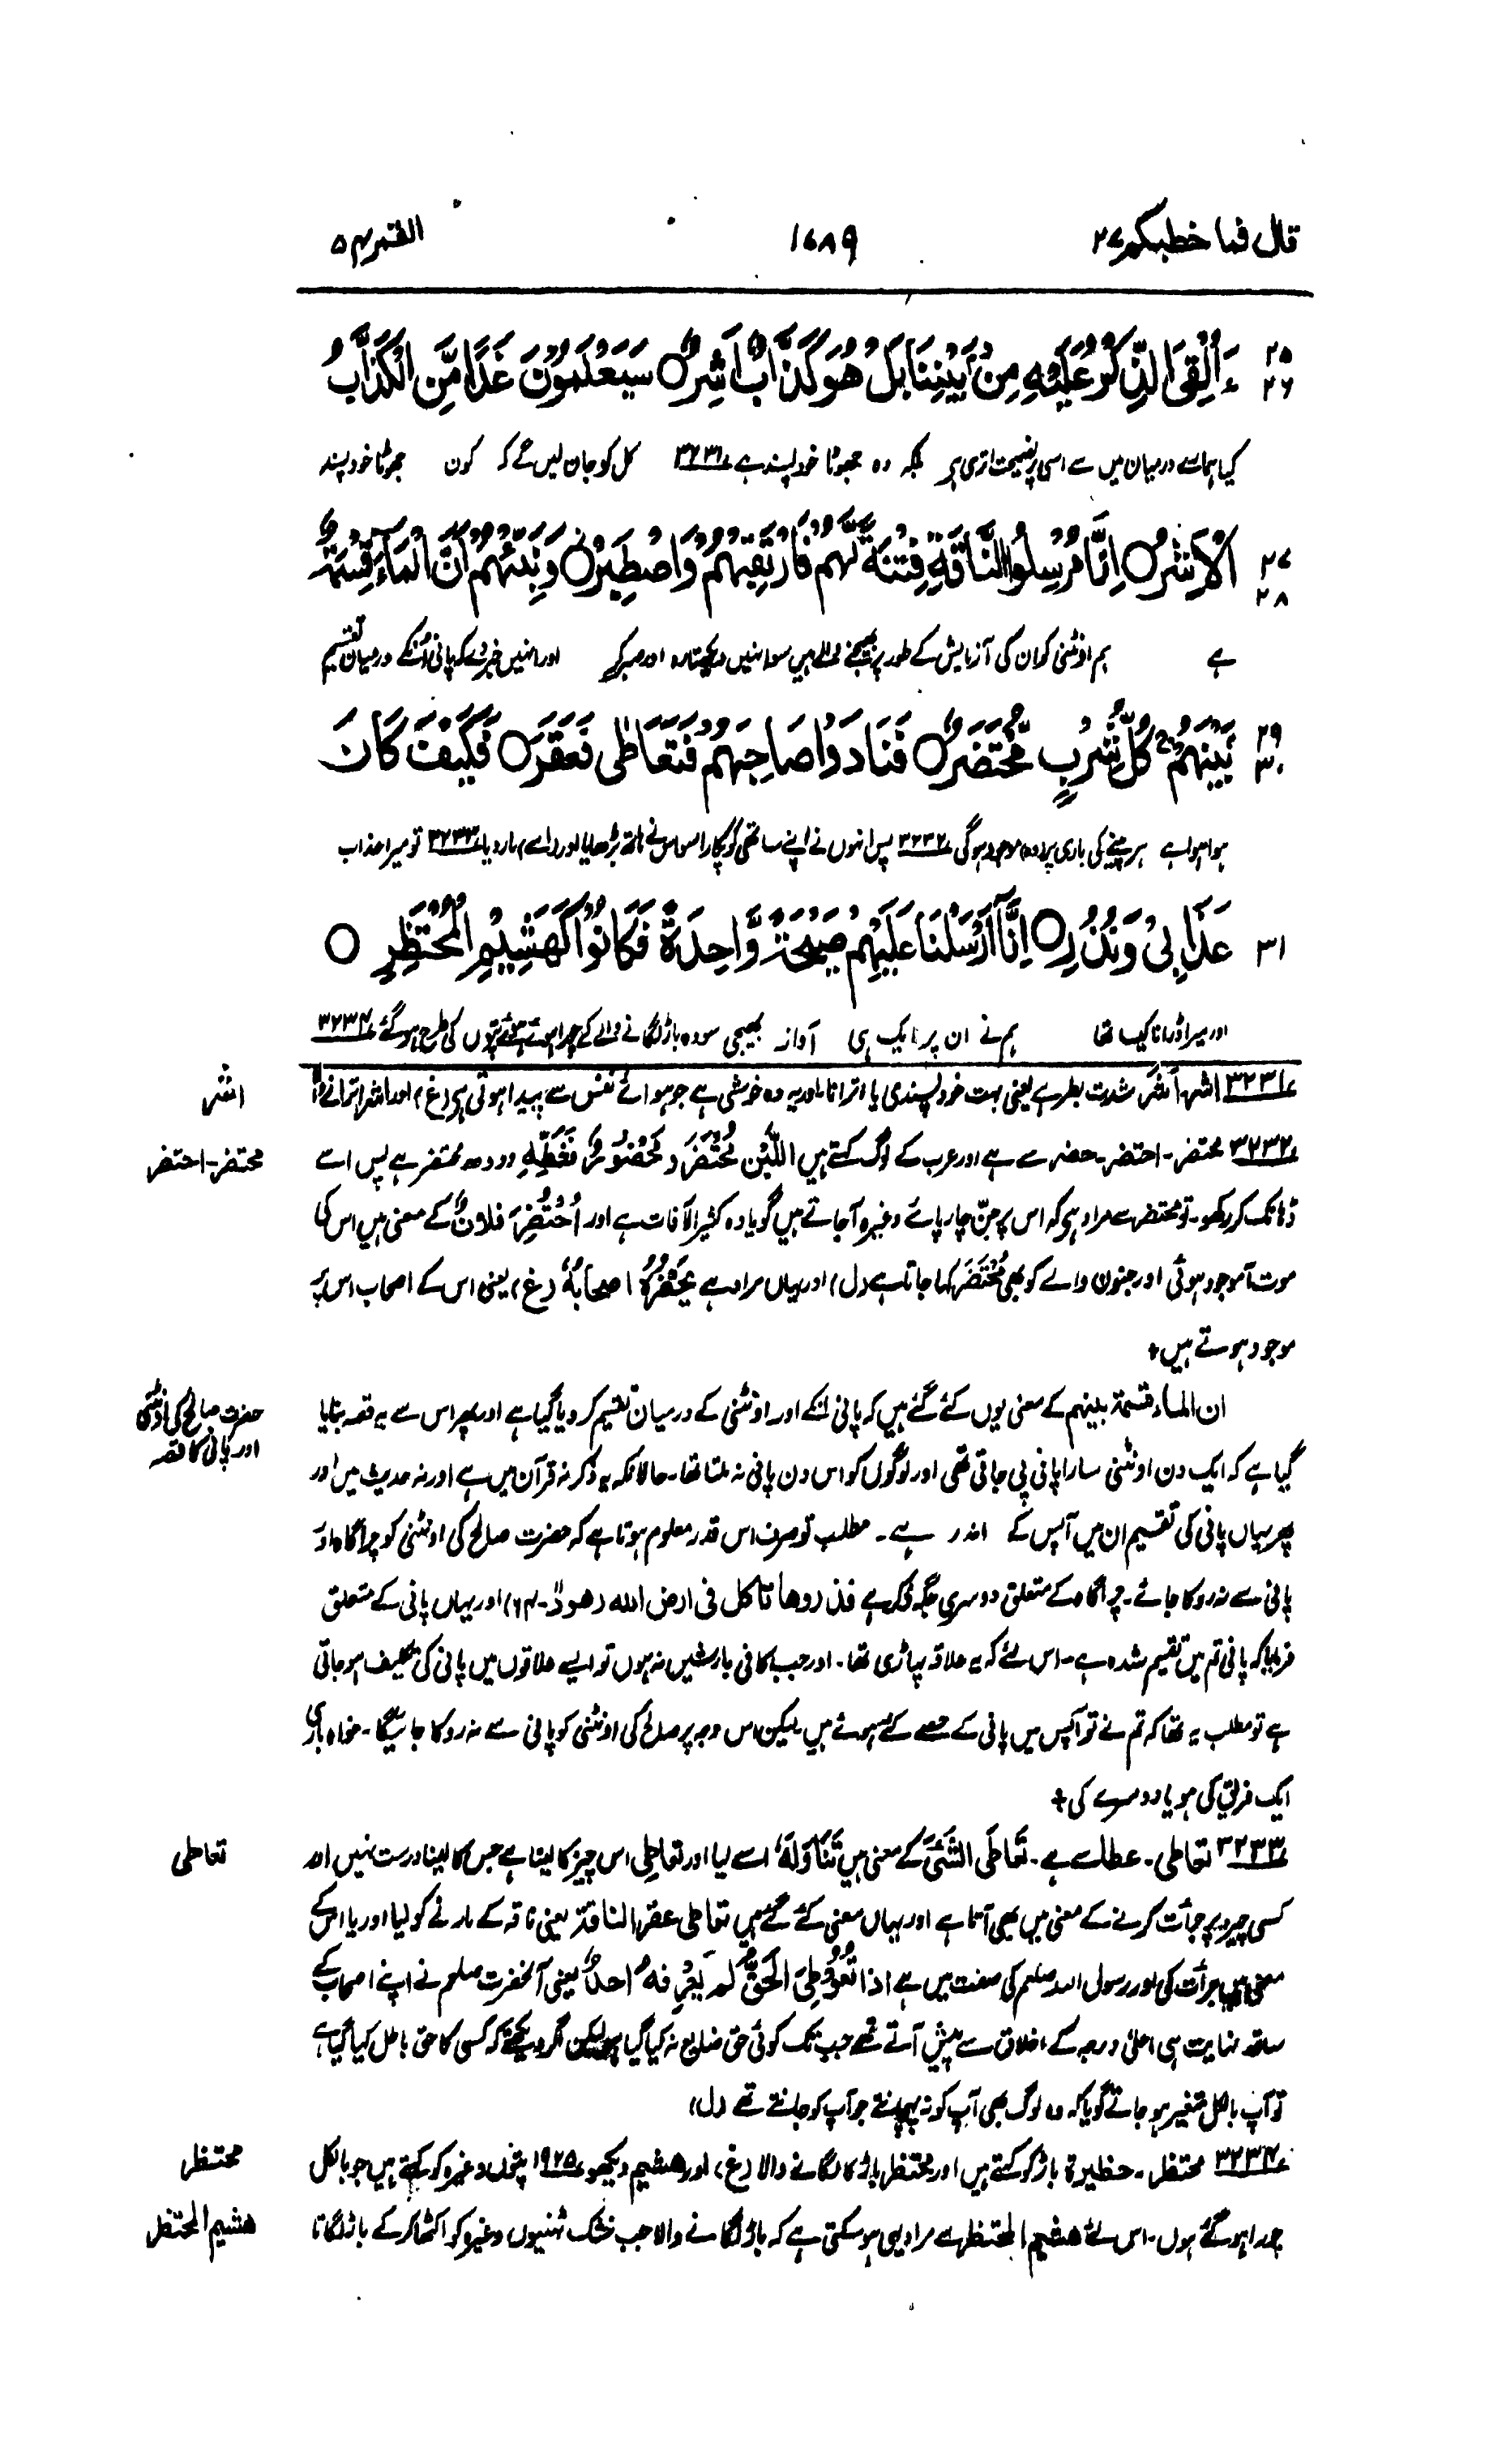 قال فما خطبکم ٢٧
١٧٨٩
القمر ٥٤
٢٥
٢٦
ءَاُلْقِیَ الذِّکْرُ عَلَیْهِ مِنْۢ بَیْنِنَا بَلْ هُوَ کَذَّابٌ اَشِرٌ○ سَیَعْلَمُوْنَ غَدًا مَّنِ الْکَذَّابُ
کیا ہمارے درمیان میں سے اسی پر نصیحت اتری ہے بلکہ وہ جھوٹا خود پسند ہے ٣٢٣١ کل کو جان لیں گے کہ کون جھوٹا خود پسند
٢٧
٢٨
الْاَشِرُ○ اِنَّا مُرْسِلُوا النَّاقَةِ فِتْنَةً لَّهُمْ فَارْتَقِبْهُمْ وَاصْطَبِرْ○ وَنَبِّئْهُمْ اَنَّ الْمَآءَ قِسْمَةٌۢ
ہے ہم اونٹنی کو ان کی آزمایش کے طور پر بھیجنے والے ہیں سو انہیں دیکھتا رہ اور صبر کر اور انہیں خبر دے کہ پانی انکے درمیان تقسیم
٢٩
٣٠
بَیْنَهُمْ ۚ کُلُّ شِرْبٍ مُّحْتَضَرٌ○ فَنَادَوْا صَاحِبَهُمْ فَتَعَاطٰی فَعَقَرَ○ فَکَیْفَ کَانَ
ہوا ہوا ہے ہر پینے کی باری پر (وہ) موجود ہوگی ٣٢٣٢ پس انہوں نے اپنے ساتھی کو پکارا سو اس نے ہاتھ بڑھایا اور (اسے) مار دیا ٣٢٣٣ تو میرا عذاب
٣١
عَذَابِیْ وَنُذُرِ○ اِنَّآ اَرْسَلْنَا عَلَیْهِمْ صَیْحَةً وَّاحِدَةً فَکَانُوْا کَهَشِیْمِ الْمُحْتَظِرِ ○
اور میرا ڈرانا کیسا تھا ہم نے ان پر ایک ہی آواز بھیجی سو وہ باڑ لگانے والے کے چورا ہوئے ہوئے پتوں کی طرح ہو گئے ٣٢٣٤
٣٢٣١ اشر۔ اَشَر شدت بطر ہے یعنی بہت خود پسندی یا اترانا، اور یہ وہ خوشی ہے جو ہوائے نفس سے پیدا ہوتی ہے (غ) اور اشر اترانے والا
اشر
٣٢٣٢ محتضر۔ احتضر۔ حضر سے ہے اور عرب کے لوگ کہتے ہیں اللَّبَنُ مُحْتَضَرٌ وَمَحْضُوْرٌ فَغَطِّهِ دودھ محتضر ہے پس اسے
محتضر۔ احتضر
ڈھانک کر رکھو۔ تو محتضر سے مراد ہے کہ اس پر جنّ چارپائے وغیرہ آجاتے ہیں گویا وہ کثیر الآفات ہے اور اُحْتُضِرَ فلانٌ کے معنی ہیں اس کی
موت آموجود ہوئی اور جنون والے کو بھی مُحْتَضَر کہا جاتا ہے (ل) اور یہاں مراد ہے یَحْضُرُهٗ اصحابُهٗ (غ) یعنی اس کے اصحاب اس پر
موجود ہوتے ہیں+
ان الماء قسمة بینهم کے معنی یوں کئے گئے ہیں کہ پانی انکے اور اونٹنی کے درمیان تقسیم کر دیا گیا ہے اور پھر اس سے یہ قصہ بنایا
حضرت صالح کی اونٹنی
اور پانی کا قصہ
گیا ہے کہ ایک دن اونٹنی سارا پانی پی جاتی تھی اور لوگوں کو اس دن پانی نہ ملتا تھا۔ حالانکہ یہ ذکر نہ قرآن میں ہے اور نہ حدیث میں اور
پھر یہاں پانی کی تقسیم ان میں آپس کے اندر ہے۔ مطلب تو صرف اس قدر معلوم ہوتا ہے کہ حضرت صالح کی اونٹنی کو چراگاہ اور
پانی سے نہ روکا جائے۔ چراگاہ کے متعلق دوسری جگہ ذکر ہے فذروها تاکل فی ارض الله (هود۔ ٦٤) اور یہاں پانی کے متعلق
فرمایا کہ پانی تم میں تقسیم شدہ ہے۔ اس لئے کہ یہ علاقہ پہاڑی تھا۔ اور جب کافی بارشیں نہ ہوں تو ایسے علاقوں میں پانی کی تکلیف ہو جاتی
ہے تو مطلب یہ تھا کہ تم نے تو آپس میں پانی کے حصے کئے ہوئے ہیں لیکن اس وجہ پر صالح کی اونٹنی کو پانی سے نہ روکا جائیگا۔ خواہ باری
ایک فریق کی ہو یا دوسرے کی+
٣٢٣٣ تعاطی۔ عطا سے ہے۔ تَعَاطَی الشَّیْءَ کے معنی ہیں تَنَاوَلَهٗ اسے لیا اور تعاطی اس چیز کا لینا ہے جس کا لینا درست نہیں اور
تعاطی
کسی چیز پر جرأت کرنے کے معنی میں بھی آتا ہے اور یہاں معنی کئے گئے ہیں تعاطی عقر الناقة یعنی ناقہ کے مارنے کو لیا اور یا اس کے
معنی ہیں جرأت کی اور رسول اللہ صلعم کی صفت میں ہے اذا تُعُوْطِیَ الْحَقُّ لَمْ یَعْرِفْهُ احدٌ یعنی آنحضرت صلعم نے اپنے اصحاب کے
ساتھ نہایت ہی اعلیٰ درجہ کے اخلاق سے پیش آتے تھے جب تک کوئی حق ضایع نہ کیا گیا ہو لیکن اگر دیکھتے کہ کسی کا حق باطل کیا گیا ہے
تو آپ بالکل متغیر ہو جاتے گویا کہ وہ لوگ بھی آپ کو نہ پہچانتے جو آپ کو جانتے تھے (ل)
٣٢٣٤ محتظر۔ حظیرة باڑ کو کہتے ہیں اور محتظر باڑ کا لگانے والا (غ) اور هشیم دیکھو ١٩٢٥ پتوں وغیرہ کو کہتے ہیں جو بالکل
محتظر
چورا ہو گئے ہوں۔ اس لئے هشیم المحتظر سے مراد یہی ہو سکتی ہے کہ باڑ لگانے والا جب خشک ٹہنیوں وغیرہ کو اکٹھا کرکے باڑ لگاتا
هشیم المحتظر